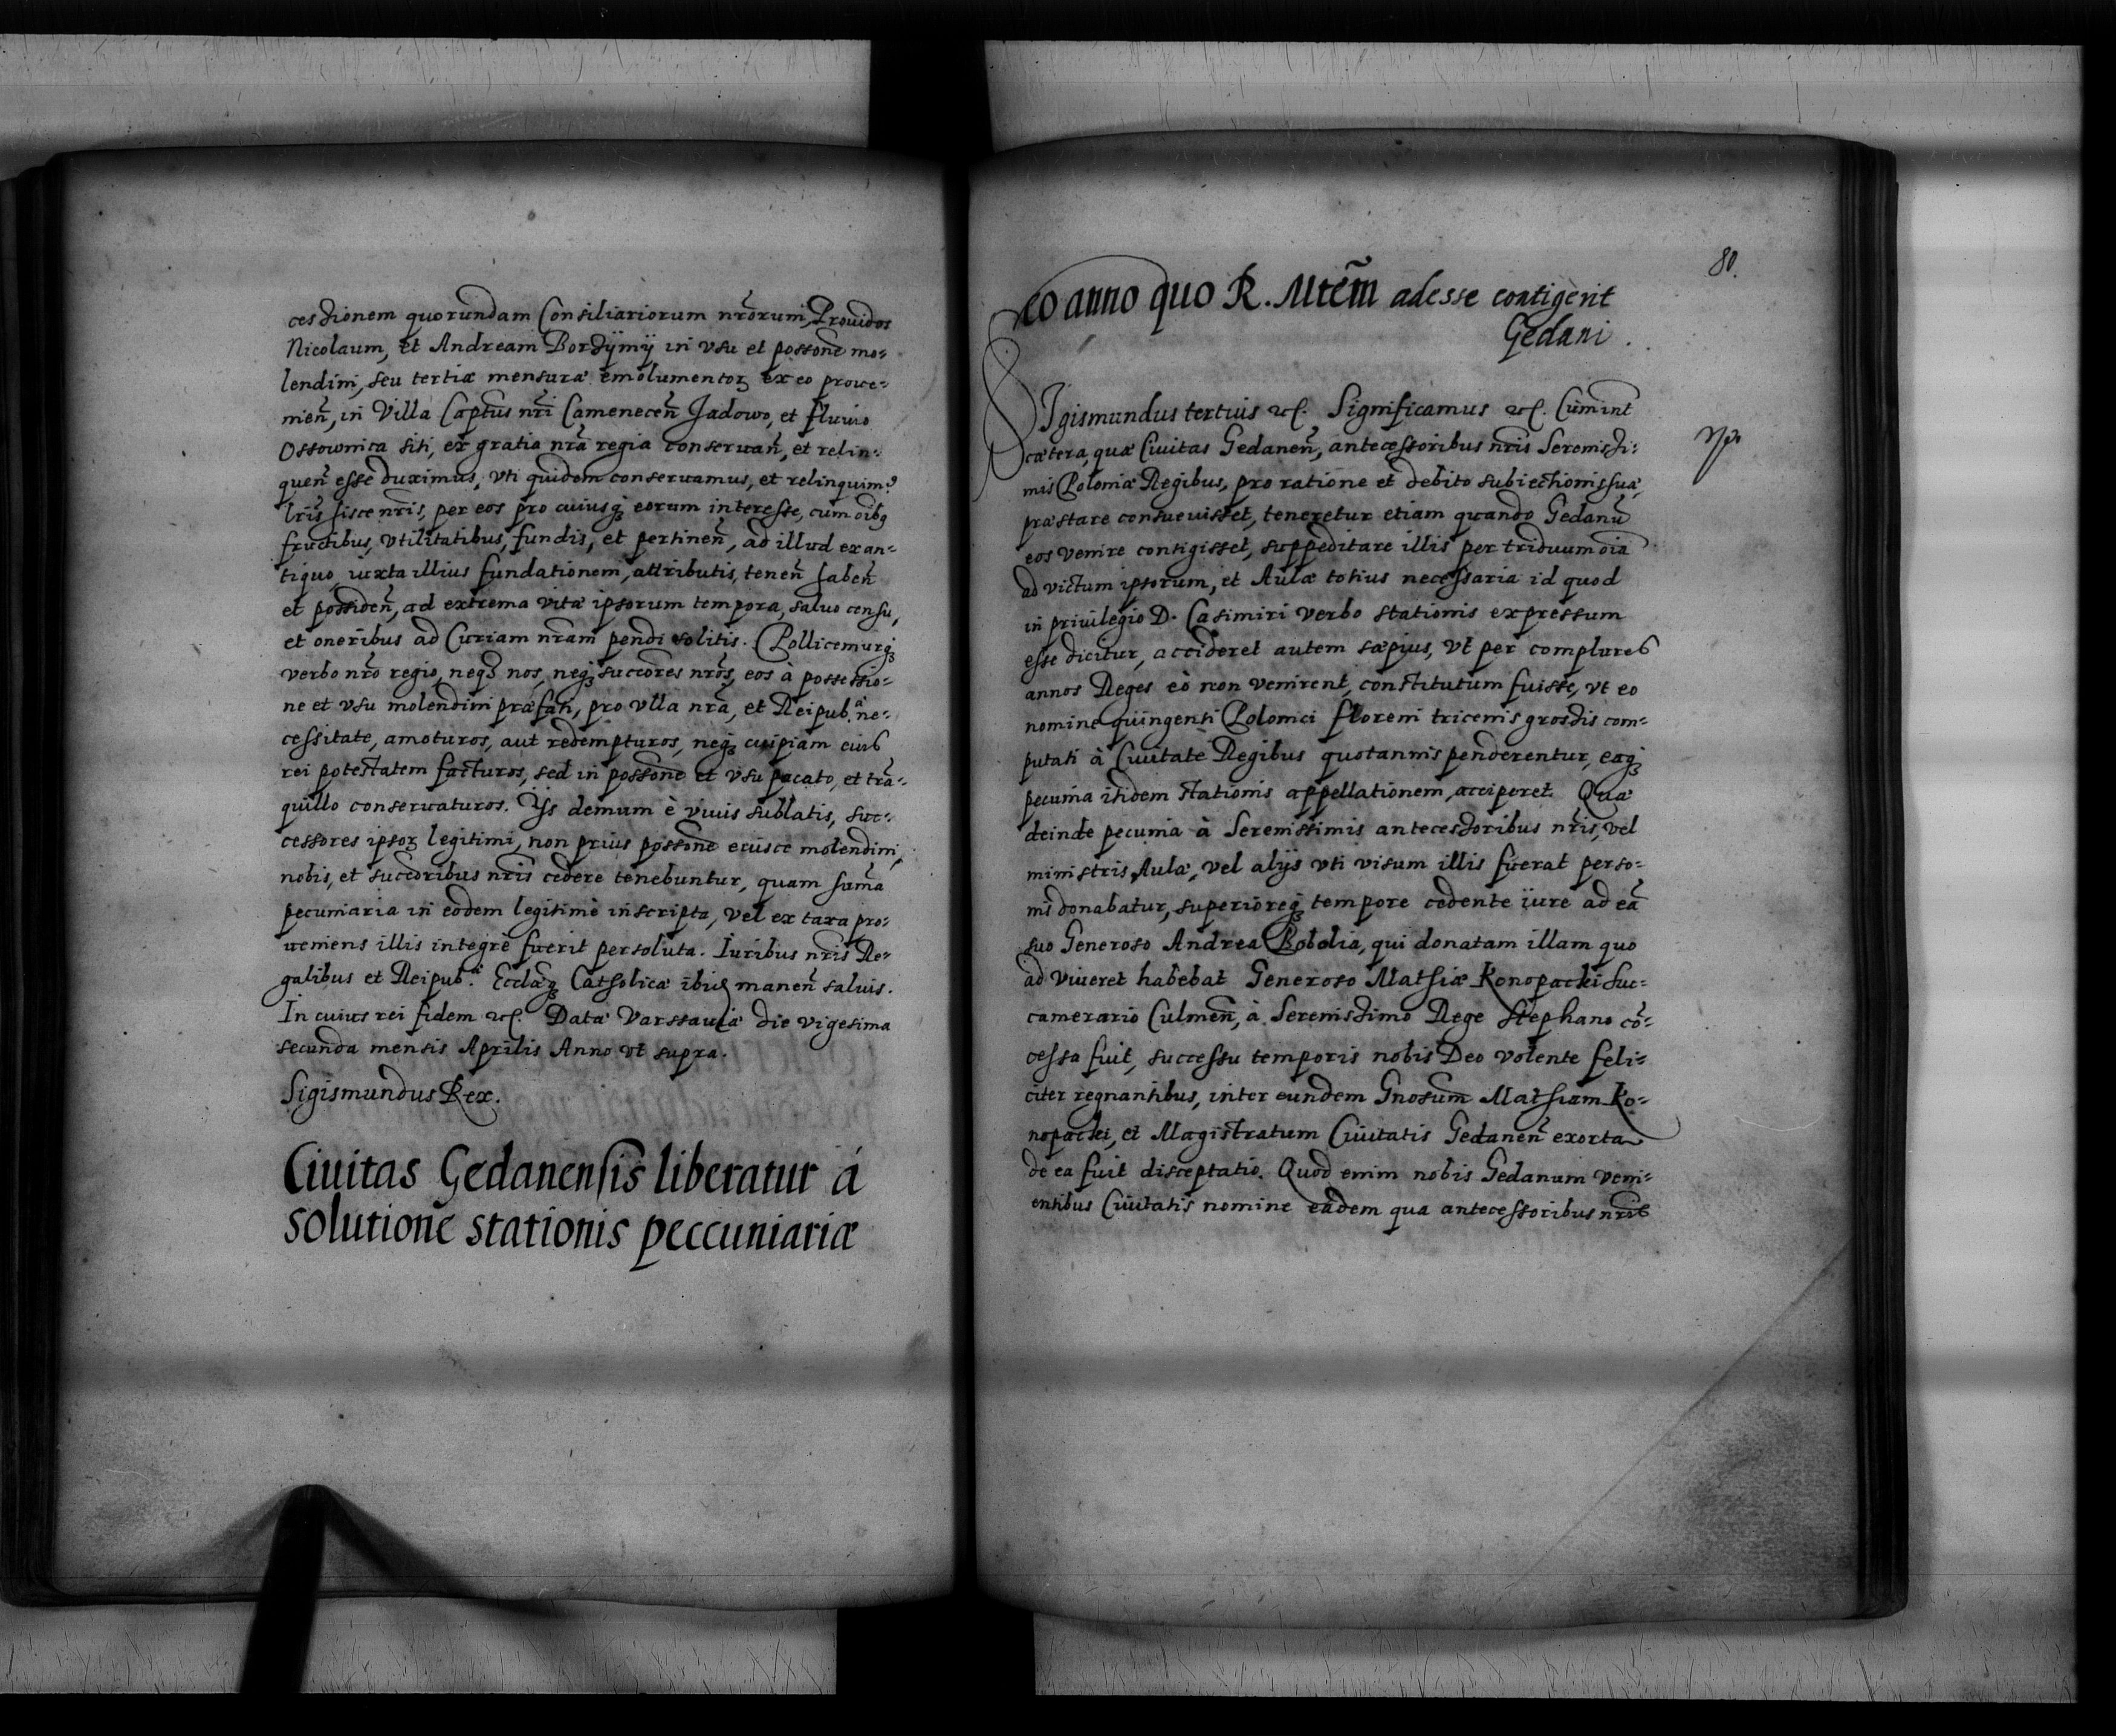 cessionem quorundam Consiliariorum nr̃orum, Prouidos
Nicolaum, et Andream Bordzÿmÿ in vsu et possoñe mo-
lendini, seu tertiæ mensuræ emolumentoꝝ ex eo proue-
nieñ, in Villa Captus nr̃i Cameneceñ Jadowo, et fluuio
Ossownica siti, ex gratia nr̃a regia conseruañ, et relin-
queñ esse duximus, vti quidem conseruamus, et relinquim9
lr̃is hisce nr̃is, per eos pro cuiusqꝫ eorum interesse, cum oibꝫ
fructibus, vtilitatibus, fundis, et pertineñ, ad illud ex an-
tiquo, iuxta illius fundationem, attributis, teneñ habeñ
et possideñ, ad extrema vitæ ipsorum tempora, saluo censu,
et oneribus ad Curiam nr̃am pendi solitis. Pollicemurqꝫ
verbo nr̃o regio, neqꝫ nos, neqꝫ succores nr̃os, eos à possessio-
ne et vsu molendini præfati, pro vlla nr̃a, et Reipub.ᵃ ne-
cessitate, amoturos, aut redempturos, neqꝫ cuipiam eius
rei potestatem facturos, sed in possoñe et vsu pacato, et trã-
quillo conseruaturos. Ÿs demum è viuis sublatis, suc-
cessores ipsoꝝ legitimi, non prius possoñe eiusce molendini,
nobis, et succoribus nr̃is cedere tenebuntur, quam sum̃a
pecuniaria in eodem legitimè inscripta, vel ex taxa pro-
ueniens illis integrè fuerit persoluta. Iuribus nr̃is Re-
galibus et Reipub.ᵃ Ecclæqꝫ Catholicæ ibid maneñ saluis.
In cuius rei fidem etc. Datæ Varssauiæ die vigesima
secunda mensis Aprilis Anno vt supra.
Sigismundus Rex.
Ciuitas Gedanensis liberatur á
solutione stationis peccuniariæ
80.
eo anno quo R. Mtẽm adesse contigerit
Gedani.
SIgismundus tertius etc. Significamus etc. Cùm int
cætera, quæ Ciuitas Gedaneñ, antecessoribus nr̃is Serenissi-
mis Poloniæ Regibus, pro ratione et debito subiectionis suæ,
præstare consueuisset, teneretur etiam quando Gedanũ
eos venire contigisset, suppeditare illis per triduum oĩa
ad victum ipsorum, et Aulæ totius necessaria id quod
in priuilegio D. Casimiri verbo stationis expressum
esse dicitur, accideret autem sæpius, vt per complures
annos Reges eò non venirent, constitutum fuisse, vt eo
nomine quingenti Polonici floreni tricenis grossis com-
putati à Ciuitate Regibus quotannis penderentur, eaqꝫ
pecunia itidem stationis appellationem acciperet. Quæ
deinde pecunia à Serenissimis antecessoribus nr̃is, vel
ministris Aulæ, vel alijs vti visum illis fuerat perso-
nis donabatur, superioreqꝫ tempore cedente iure ad eã
suo Generoso Andrea Bobolia, qui donatam illam quo
ad viueret habebat Generoso Mathiæ Konopacki suc-
camerario Culmeñ, à Serenissimo Rege Stephano cõ-
cessa fuit, successu temporis nobis Deo volente feli-
citer regnantibus, inter eundem Gnosum Mathiam Ko-
nopacki, et Magistratum Ciuitatis Gedaneñ exorta
de ea fuit disceptatio. Quod enim nobis Gedanum veni-
entibus Ciuitatis nomine eadem qua antecessoribus nr̃is